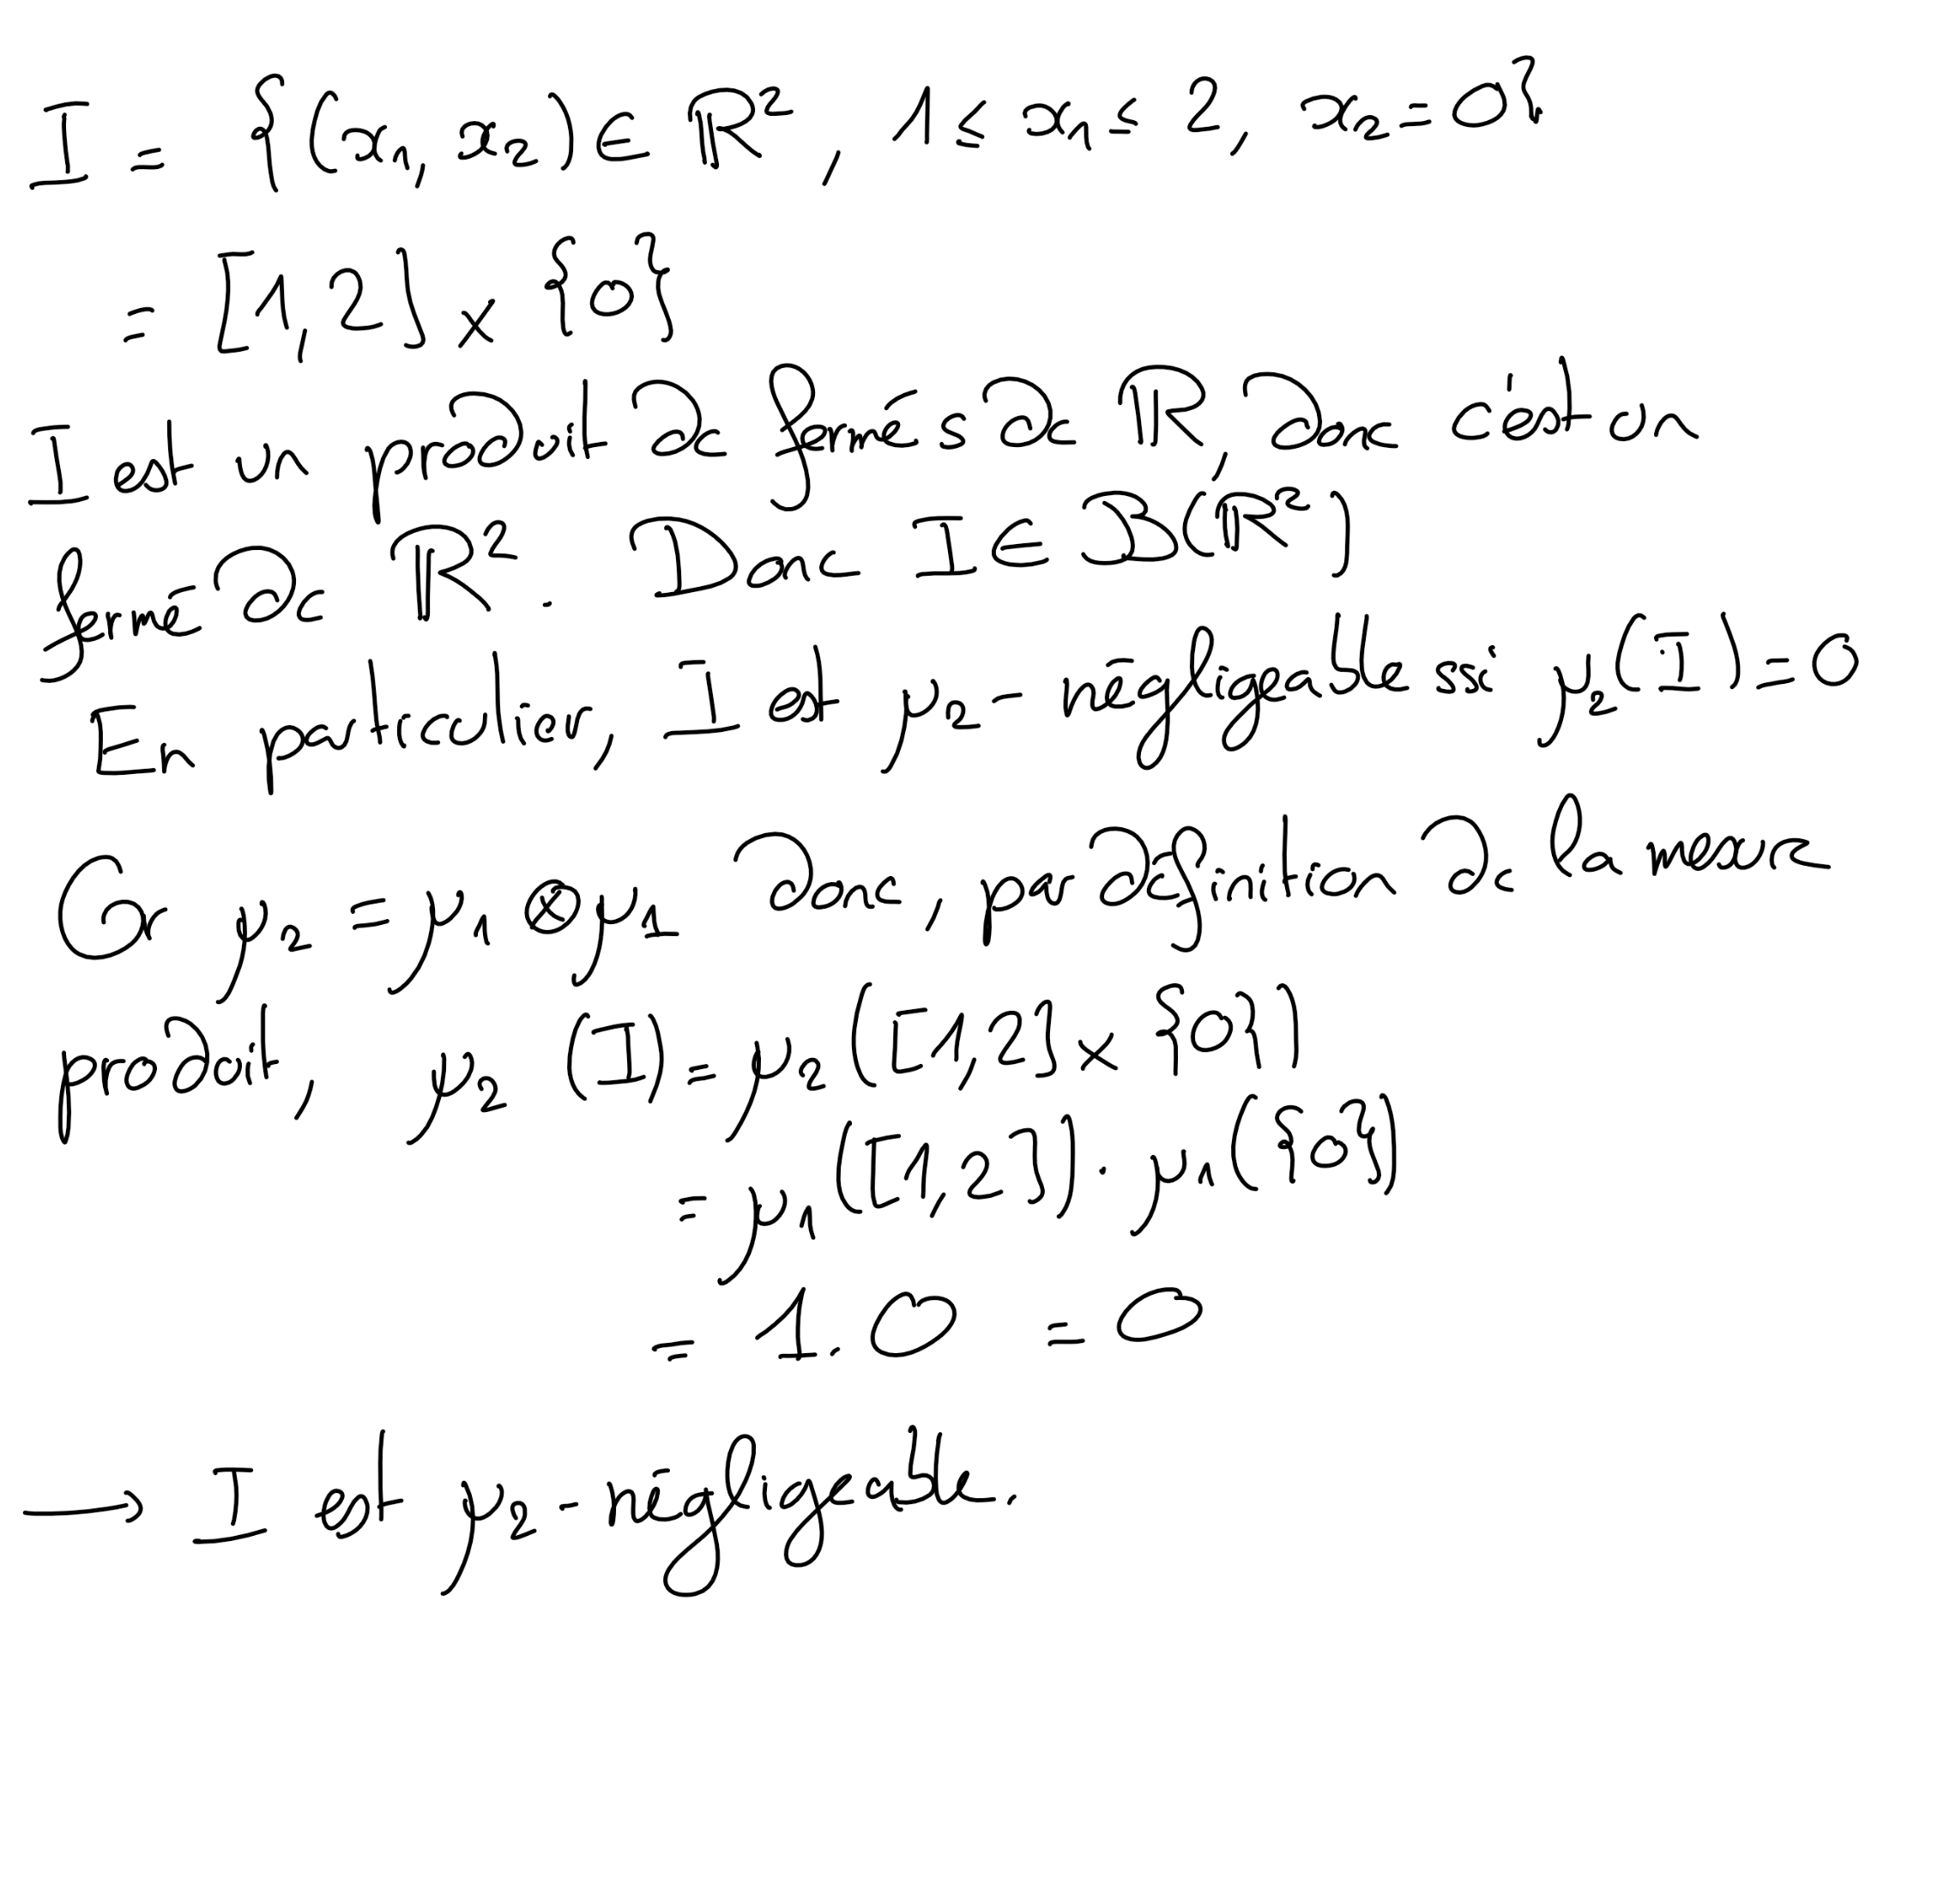 I = {(x₁, x₂) ∈ ℝ², 1 ≤ x₁ ≤ 2, x₂ = 0}
= [1, 2] × {0}
I est un produit de fermés de ℝ, donc c'est un
fermé de ℝ². Donc I ∈ B(ℝ²)
En particulier, I est μ₂-négligeable ssi μ₂(I) = 0
Or μ₂ = μ₁ ⊗ μ₁ donc, par définition de la mesure
produit, μ₂(I) = μ₂([1,2] × {0})
= μ₁([1,2]) · μ₁({0})
= 1 . 0 = 0
→ I est μ₂-négligeable.